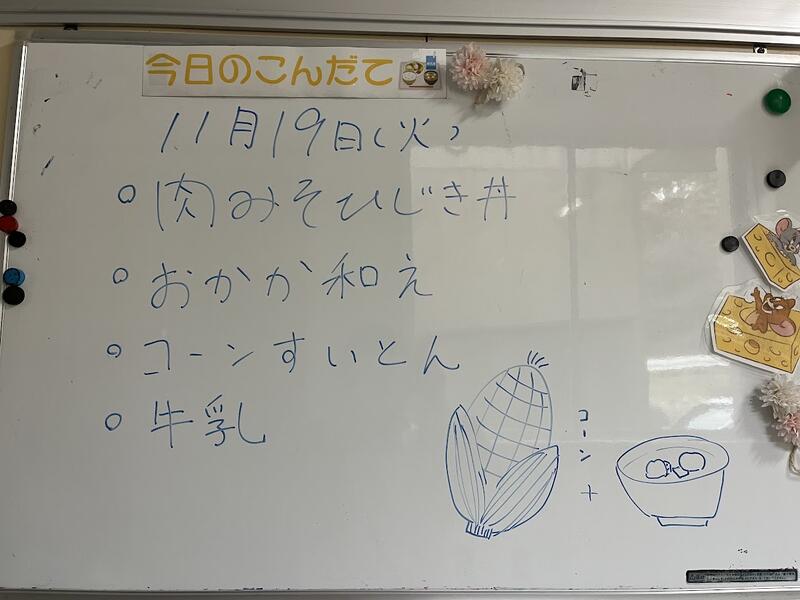 今日のこんだて
11月19日(火)
○ 肉みそひじき丼
○ おかか和え
○ コーンすいとん
○ 牛乳
コーン
+